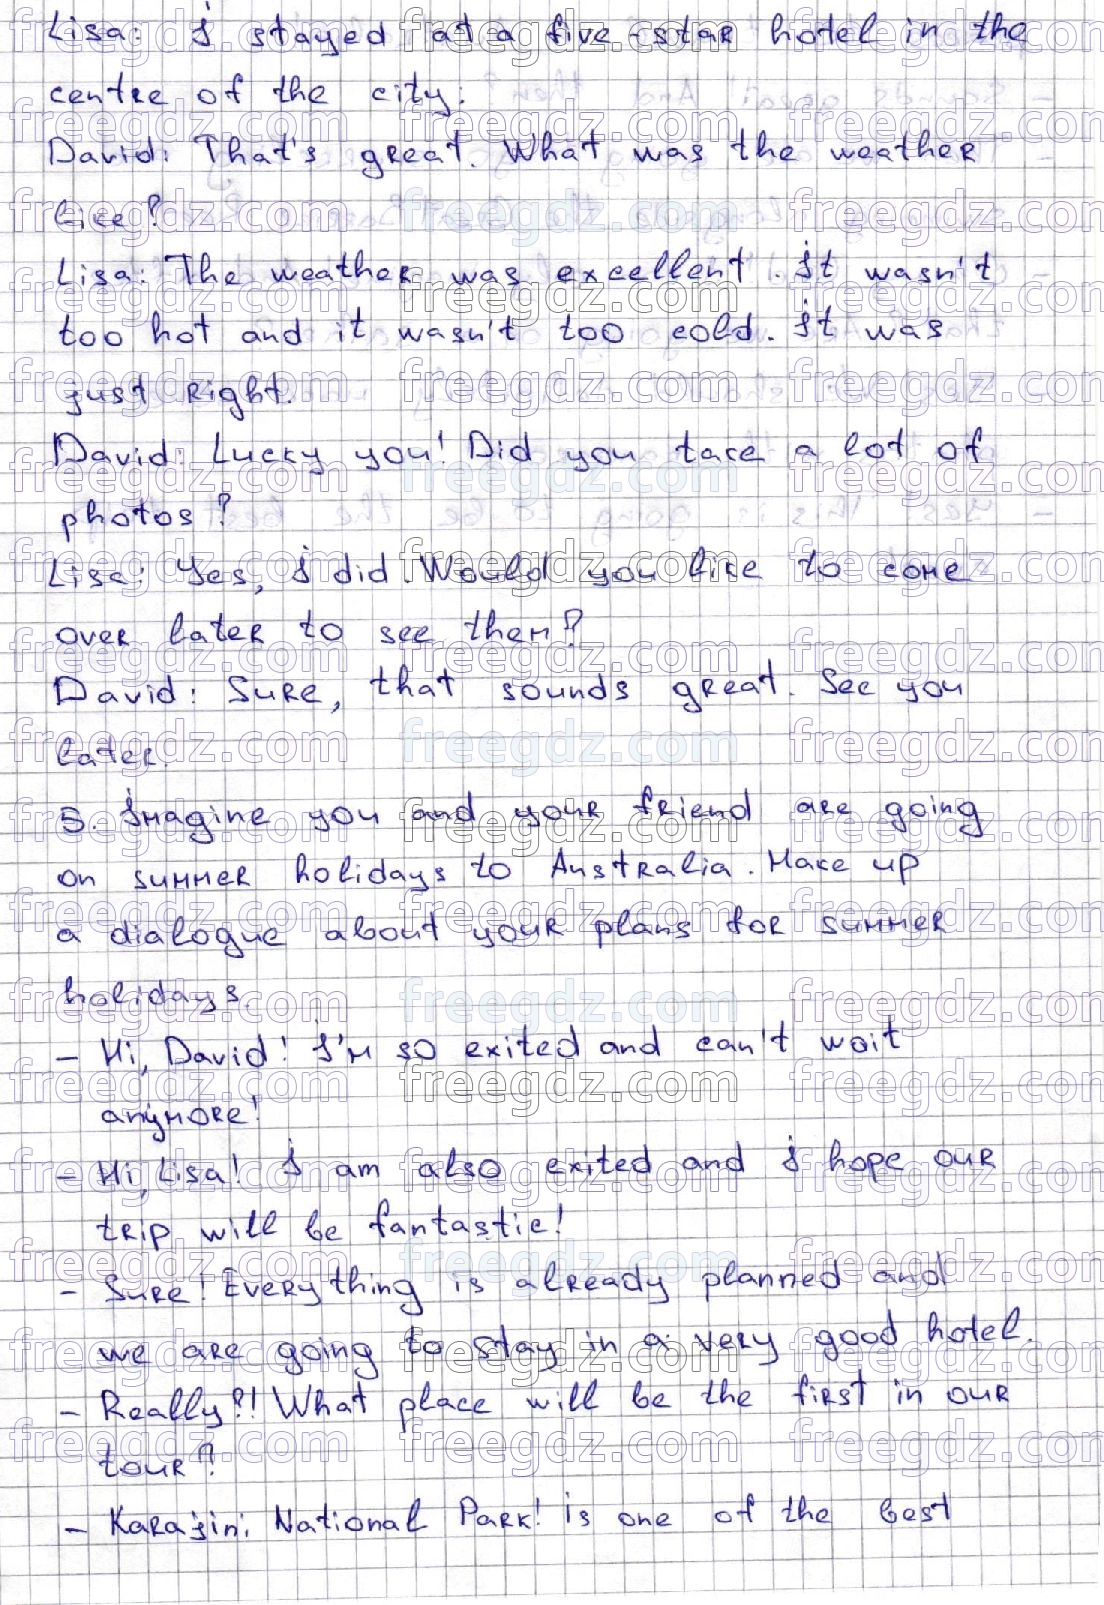 Lisa: I stayed at a five-star hotel in the
centre of the city.
David: That's great. What was the weather
like?
Lisa: The weather was excellent. It wasn't
too hot and it wasn't too cold. It was
just right.
David: Lucky you! Did you take a lot of
photos?
Lisa: Yes, I did. Would you like to come
over later to see them?
David: Sure, that sounds great. See you
later.
5. Imagine you and your friend are going
on summer holidays to Australia. Make up
a dialogue about your plans for summer
holidays.
- Hi, David! I'm so exited and can't wait
anymore!
- Hi, Lisa! I am also exited and I hope our
trip will be fantastic!
- Sure! Everything is already planned and
we are going to stay in a very good hotel.
- Really?! What place will be the first in our
tour?
- Karajini National Park! is one of the best
freegdz.com